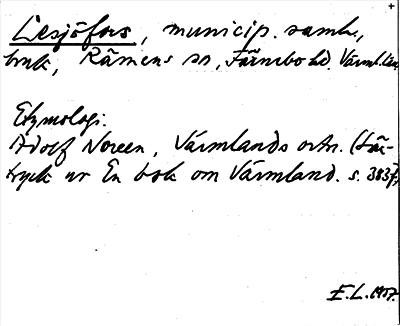 Lesjöfors, municip. samh.,
bruk, Rämens sn, Färnebo hd. Värml. län
Etymologi.
Adolf Noreen, Värmlands ortn. (Sär-
tryck ur En bok om Värmland. s. 383f.)
E.L. 1957.